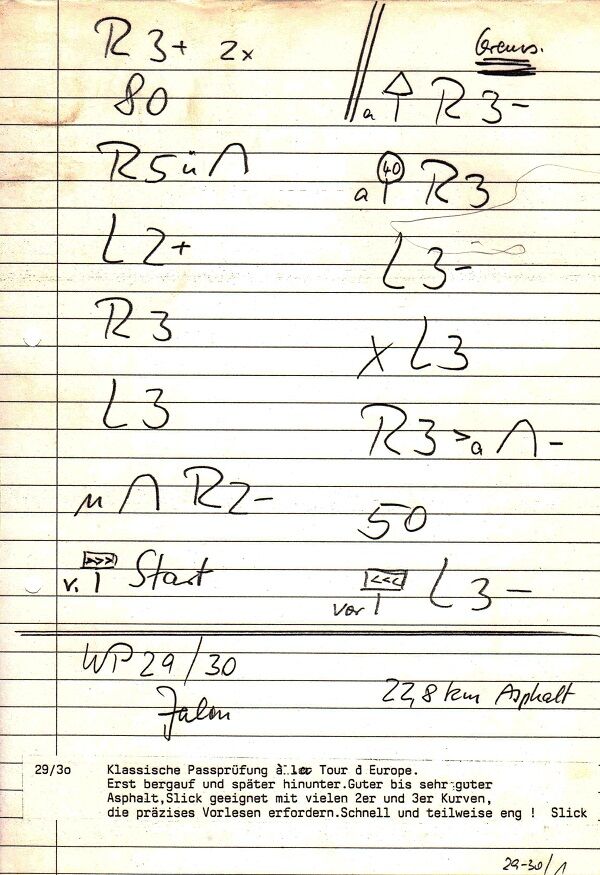 R 3+ 2x
80
R5 ü ∩
L 2+
R 3
L 3
∩ R2-
v. >>> Start
a R 3-
a 40 R3
L 3-
X L3
R3 > a ∩ -
50
vor <<< L 3-
WP 29/30
22,8 km Asphalt
29/3o Klassische Passprüfung à la Tour d Europe.
Erst bergauf und später hinunter.Guter bis sehr guter
Asphalt,Slick geeignet mit vielen 2er und 3er Kurven,
die präzises Vorlesen erfordern.Schnell und teilweise eng ! Slick
29-30/1